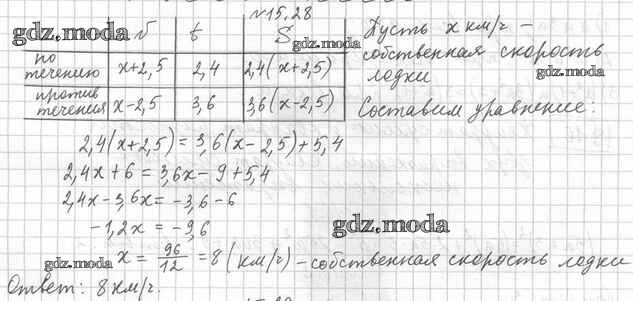 №15,28
gdz.moda
v t S
gdz.moda
по течению x+2,5 2,4 2,4(x+2,5)
против течения x-2,5 3,6 3,6(x-2,5)
Пусть x км/г -
собственная скорость
gdz.moda
лодки
Составим уравнение:
2,4(x+2,5)=3,6(x-2,5)+5,4
2,4x+6=3,6x-9+5,4
2,4x-3,6x=-3,6-6
-1,2x=-9,6
gdz.moda
gdz.moda
x=96/12=8(км/г)-собственная скорость лодки
Ответ: 8 км/г.